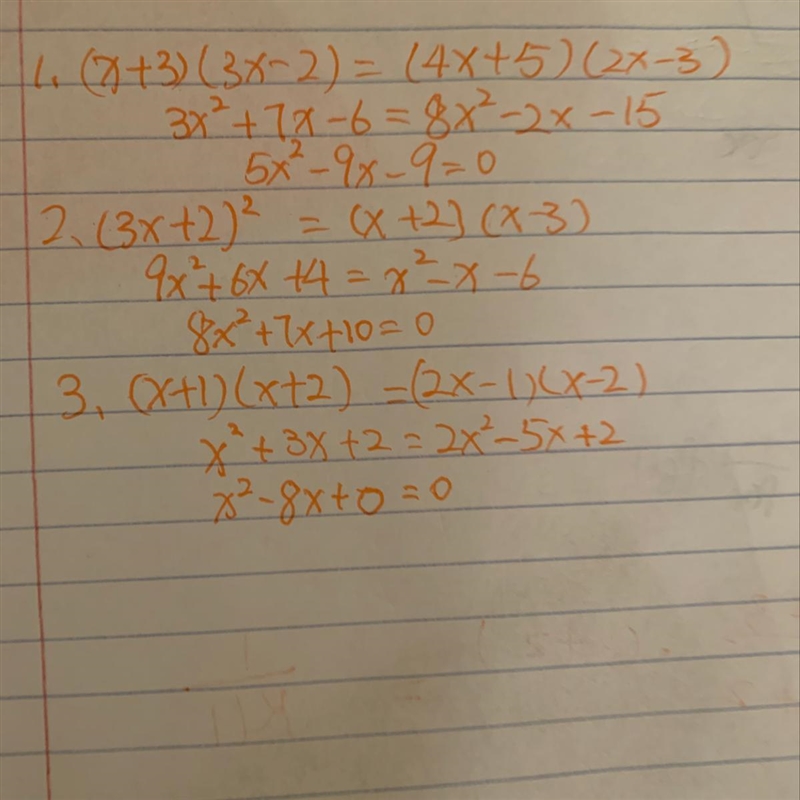 1. (x+3)(3x-2) = (4x+5)(2x-3)
3x²+7x-6 = 8x²-2x-15
5x²-9x-9=0
2. (3x+2)² = (x+2)(x-3)
9x²+6x+4 = x²-x-6
8x²+7x+10=0
3. (x+1)(x+2) =(2x-1)(x-2)
x²+3x+2=2x²-5x+2
x²-8x+0=0